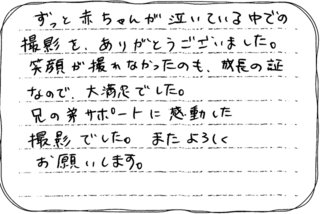 ずっと赤ちゃんが泣いている中での
撮影を、ありがとうございました。
笑顔が撮れなかったのも、成長の証
なので、大満足でした。
兄の弟サポートに感動した
撮影でした。 またよろしく
お願いします。